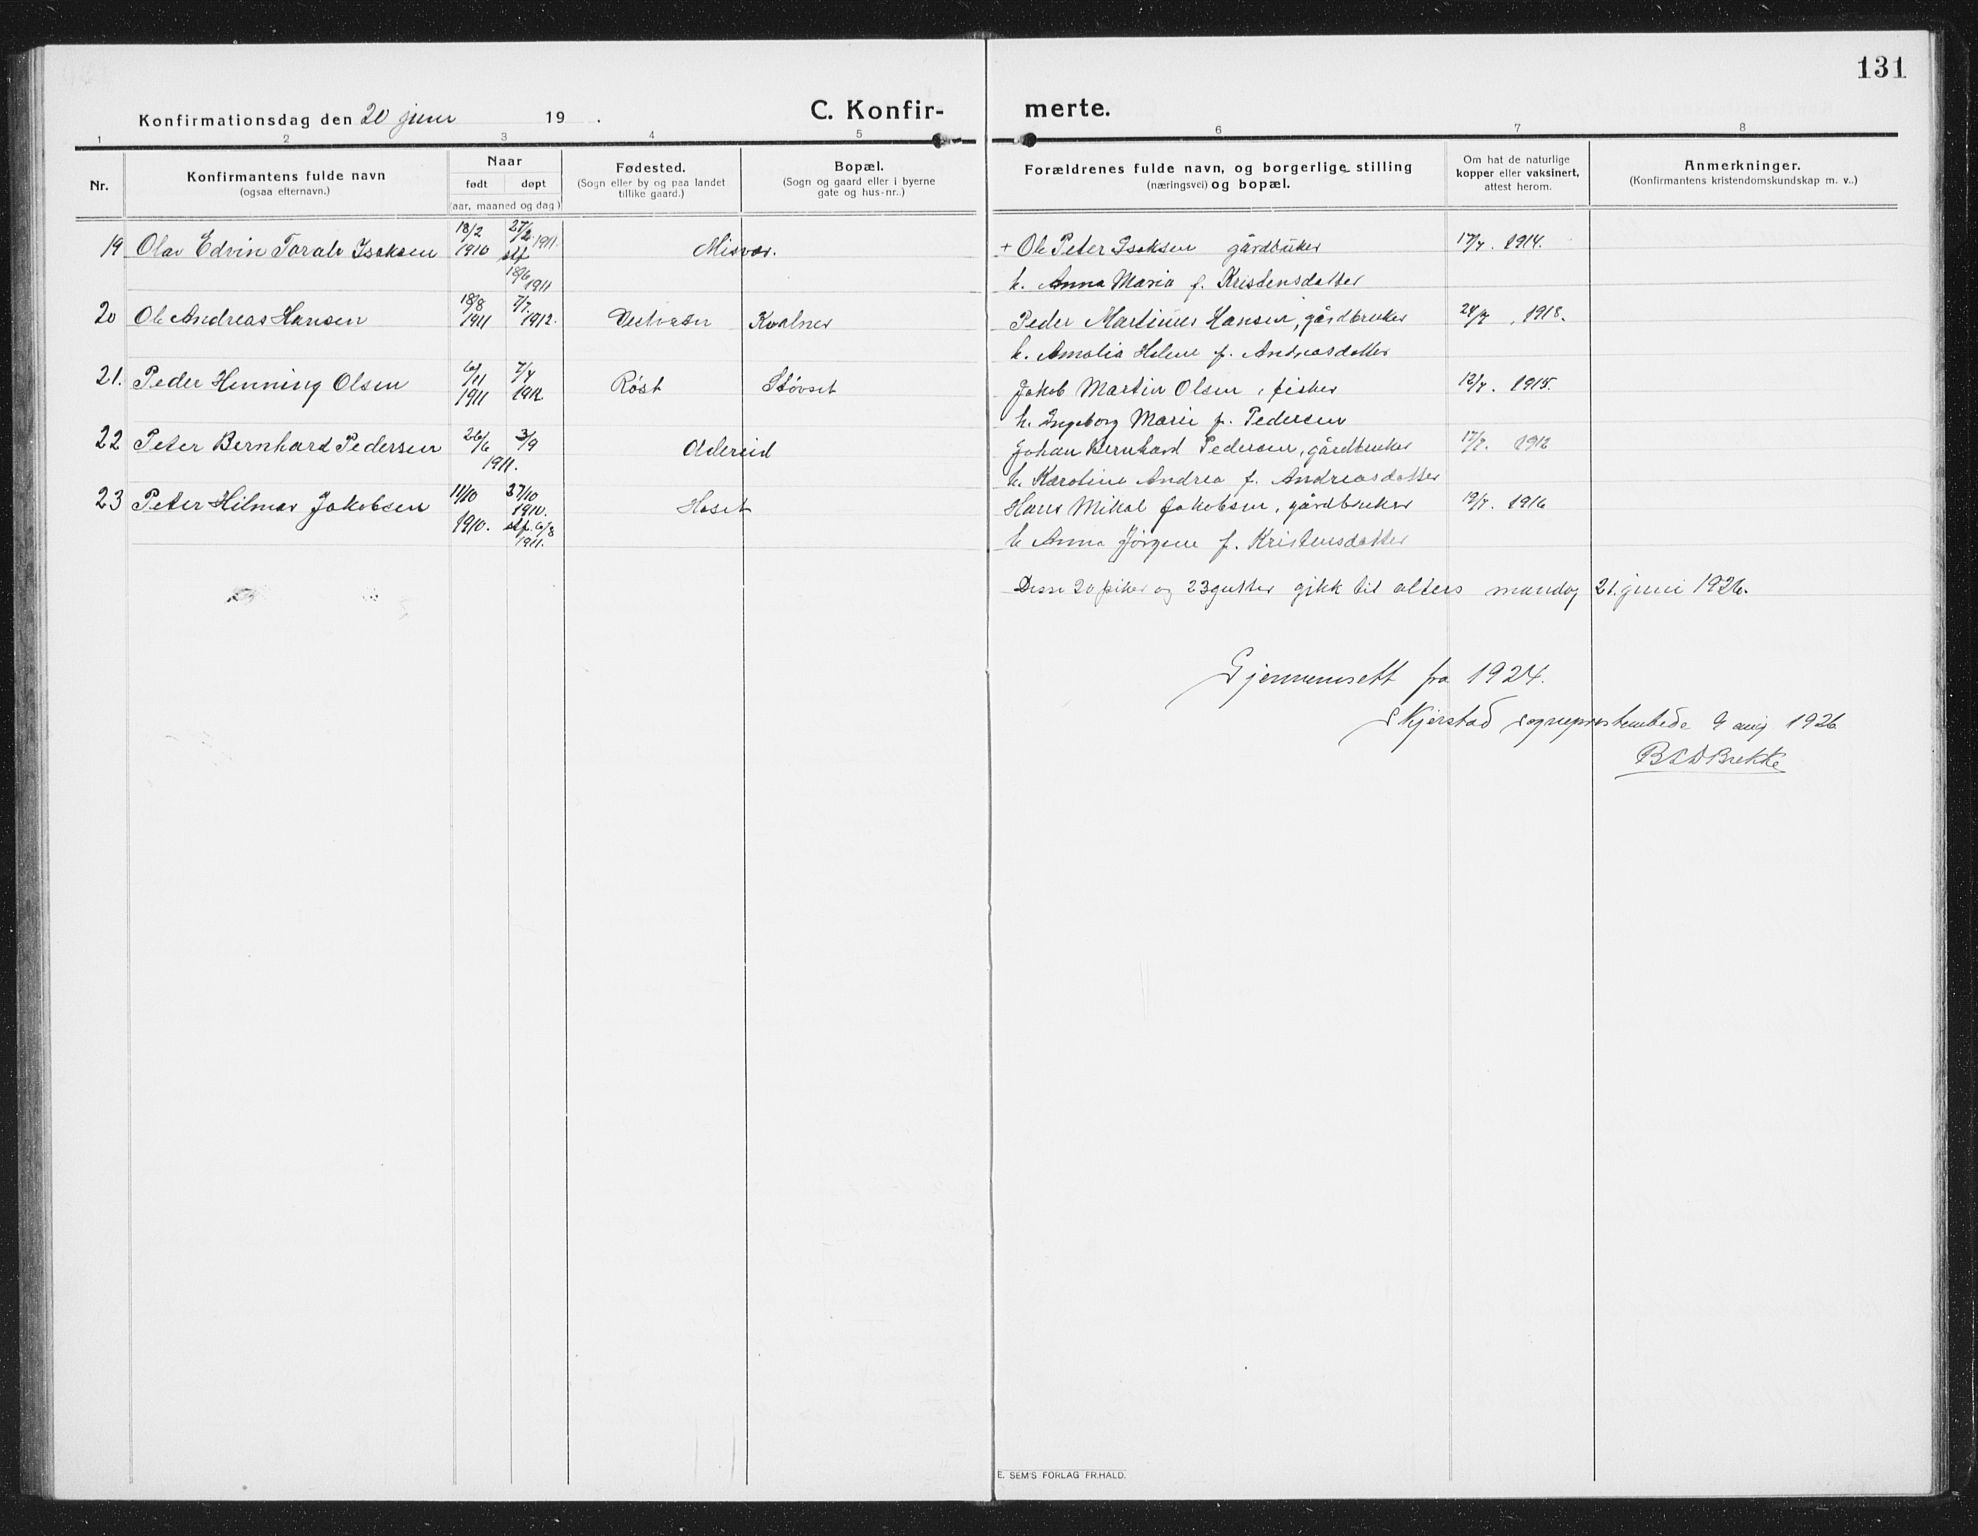 131
Konfirmationsdag den 20 juni 19 .
C. Konfir-
merte.
1 2 3 4 5 6 7 8
Nr.
Konfirmantens fulde navn
(ogsaa efternavn.)
Naar
født døpt
(aar, maaned og dag)
Fødested.
(Sogn eller by og paa landet
tillike gaard.)
Bopæl.
(Sogn og gaard eller i byerne
gate og hus-nr.)
Forældrenes fulde navn, og borgerlige stilling
(næringsvei) og bopæl.
Om hat de naturlige
kopper eller vaksinert,
attest herom.
Anmerkninger.
(Konfirmantens kristendomskundskap m. v.)
19 Olav Edvin Toralv Isaksen 18/2 1910 27/2 1911. stf 18/6 1911 Misvær. + Ole Peter Isaksen gårdbruker 17/7. 1914.
h. Anna Maria f. Kristensdatter
20 Ole Andreas Hansen 18/8 1911 7/7. 1912. Kvalnes Peder Martinus Hansen, gårdbruker 28/7, 1918.
h. Amalia Helene f. Andreasdatter
21. Peder Henning Olsen 6/11 1911 7/7 1912 Røst Støvset Jakob Martin Olsen, fisker 12/7. 1915.
h. Ingeborg Marie f. Pedersen
22 Peter Bernhard Pedersen 26/6 3/9 1911. Oldereid Johan Bernhard Pedersen, gårdbruker 17/7. 1912
h. Karoline Andrea f. Andreasdatter
23 Peter Hilmar Jakobsen 11/10 1910. 27/10 1910. stf. 6/8 1911. Høset Hans Mikal Jakobsen, gårdbruker 19/7. 1916
h Anna Jørgine f. Kristensdatter
Disse 20 piker og 23 gutter gikk til alters mandag 21. juni 1926.
Gjennemsett fra 1924.
Skjerstad sogneprestembede 9 aug 1926
Brekke
E. SEM'S FORLAG FR.HALD.